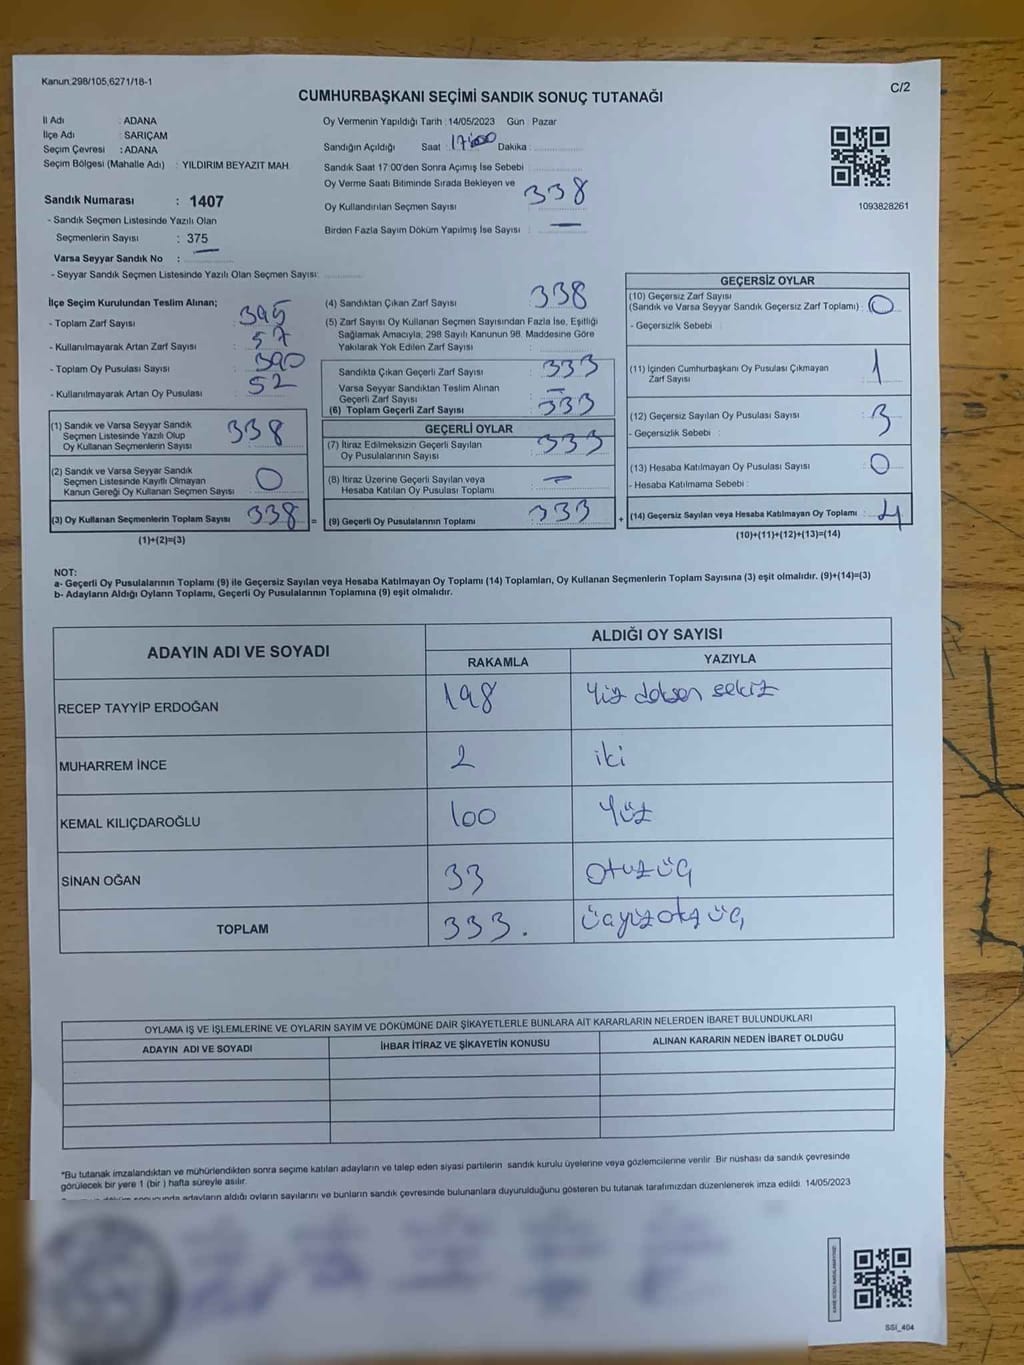 Kanun,298/105,6271/18-1
C/2
CUMHURBAŞKANI SEÇİMİ SANDIK SONUÇ TUTANAĞI
İl Adı : ADANA
İlçe Adı : SARIÇAM
Seçim Çevresi : ADANA
Seçim Bölgesi (Mahalle Adı) : YILDIRIM BEYAZIT MAH.
Sandık Numarası : 1407
- Sandık Seçmen Listesinde Yazılı Olan
Seçmenlerin Sayısı : 375
Varsa Seyyar Sandık No :
- Seyyar Sandık Seçmen Listesinde Yazılı Olan Seçmen Sayısı:
Oy Vermenin Yapıldığı Tarih : 14/05/2023 Gün : Pazar
Sandığın Açıldığı Saat : 17:00 Dakika :
Sandık Saat 17:00'den Sonra Açımış İse Sebebi
Oy Verme Saati Bitiminde Sırada Bekleyen ve
Oy Kullandırılan Seçmen Sayısı : 338
Birden Fazla Sayım Döküm Yapılmış İse Sayısı : —
1093828261
İlçe Seçim Kurulundan Teslim Alınan;
- Toplam Zarf Sayısı : 395
- Kullanılmayarak Artan Zarf Sayısı : 57
- Toplam Oy Pusulası Sayısı : 390
- Kullanılmayarak Artan Oy Pusulası : 52
(1) Sandık ve Varsa Seyyar Sandık
Seçmen Listesinde Yazılı Olup
Oy Kullanan Seçmenlerin Sayısı : 338
(2) Sandık ve Varsa Seyyar Sandık
Seçmen Listesinde Kayıtlı Olmayan
Kanun Gereği Oy Kullanan Seçmen Sayısı : 0
(3) Oy Kullanan Seçmenlerin Toplam Sayısı : 338 =
(1)+(2)=(3)
(4) Sandıktan Çıkan Zarf Sayısı : 338
(5) Zarf Sayısı Oy Kullanan Seçmen Sayısından Fazla İse, Eşitliği
Sağlamak Amacıyla, 298 Sayılı Kanunun 98. Maddesine Göre
Yakılarak Yok Edilen Zarf Sayısı :
Sandıkta Çıkan Geçerli Zarf Sayısı : 333
Varsa Seyyar Sandıktan Teslim Alınan
Geçerli Zarf Sayısı : —
(6) Toplam Geçerli Zarf Sayısı : 333
GEÇERLİ OYLAR
(7) İtiraz Edilmeksizin Geçerli Sayılan
Oy Pusulalarının Sayısı : 333
(8) İtiraz Üzerine Geçerli Sayılan veya
Hesaba Katılan Oy Pusulası Toplamı : —
(9) Geçerli Oy Pusulalarının Toplamı : 333 +
GEÇERSİZ OYLAR
(10) Geçersiz Zarf Sayısı
(Sandık ve Varsa Seyyar Sandık Geçersiz Zarf Toplamı) : 0
- Geçersizlik Sebebi :
(11) İçinden Cumhurbaşkanı Oy Pusulası Çıkmayan
Zarf Sayısı : 1
(12) Geçersiz Sayılan Oy Pusulası Sayısı : 3
- Geçersizlik Sebebi :
(13) Hesaba Katılmayan Oy Pusulası Sayısı : 0
- Hesaba Katılmama Sebebi :
(14) Geçersiz Sayılan veya Hesaba Katılmayan Oy Toplamı : 4
(10)+(11)+(12)+(13)=(14)
NOT:
a- Geçerli Oy Pusulalarının Toplamı (9) ile Geçersiz Sayılan veya Hesaba Katılmayan Oy Toplamı (14) Toplamları, Oy Kullanan Seçmenlerin Toplam Sayısına (3) eşit olmalıdır. (9)+(14)=(3)
b- Adayların Aldığı Oyların Toplamı, Geçerli Oy Pusulalarının Toplamına (9) eşit olmalıdır.
ADAYIN ADI VE SOYADI ALDIĞI OY SAYISI
RAKAMLA YAZIYLA
RECEP TAYYİP ERDOĞAN 198 Yüz doksan sekiz
MUHARREM İNCE 2 iki
KEMAL KILIÇDAROĞLU 100 Yüz
SİNAN OĞAN 33 otuzüç
TOPLAM 333.
OYLAMA İŞ VE İŞLEMLERİNE VE OYLARIN SAYIM VE DÖKÜMÜNE DAİR ŞİKAYETLERLE BUNLARA AİT KARARLARIN NELERDEN İBARET BULUNDUKLARI
ADAYIN ADI VE SOYADI İHBAR İTİRAZ VE ŞİKAYETİN KONUSU ALINAN KARARIN NEDEN İBARET OLDUĞU
*Bu tutanak imzalandıktan ve mühürlendikten sonra seçime katılan adayların ve talep eden siyasi partilerin sandık kurulu üyelerine veya gözlemcilerine verilir. Bir nüshası da sandık çevresinde
görülecek bir yere 1 (bir ) hafta süreyle asılır.
sonucunda adayların aldığı oyların sayılarını ve bunların sandık çevresinde bulunanlara duyurulduğunu gösteren bu tutanak tarafımızdan düzenlenerek imza edildi. 14/05/2023
SSİ_404